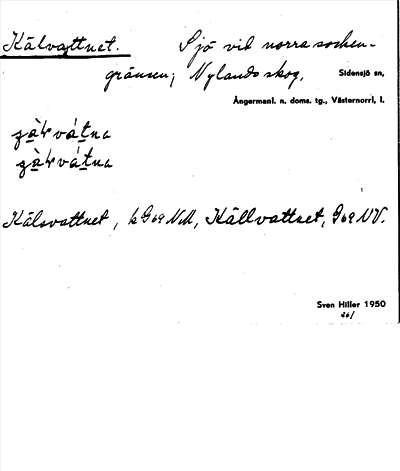 Kälvattnet. Sjö vid norra socken-
gränsen, Nylandsskog, Sidensjö sn,
Ångermanl. n. doms. tg., Västernorrl, l.
Kälsvattnet, k G69 NM, Källvattnet, G69 NV.
Sven Hiller 1950